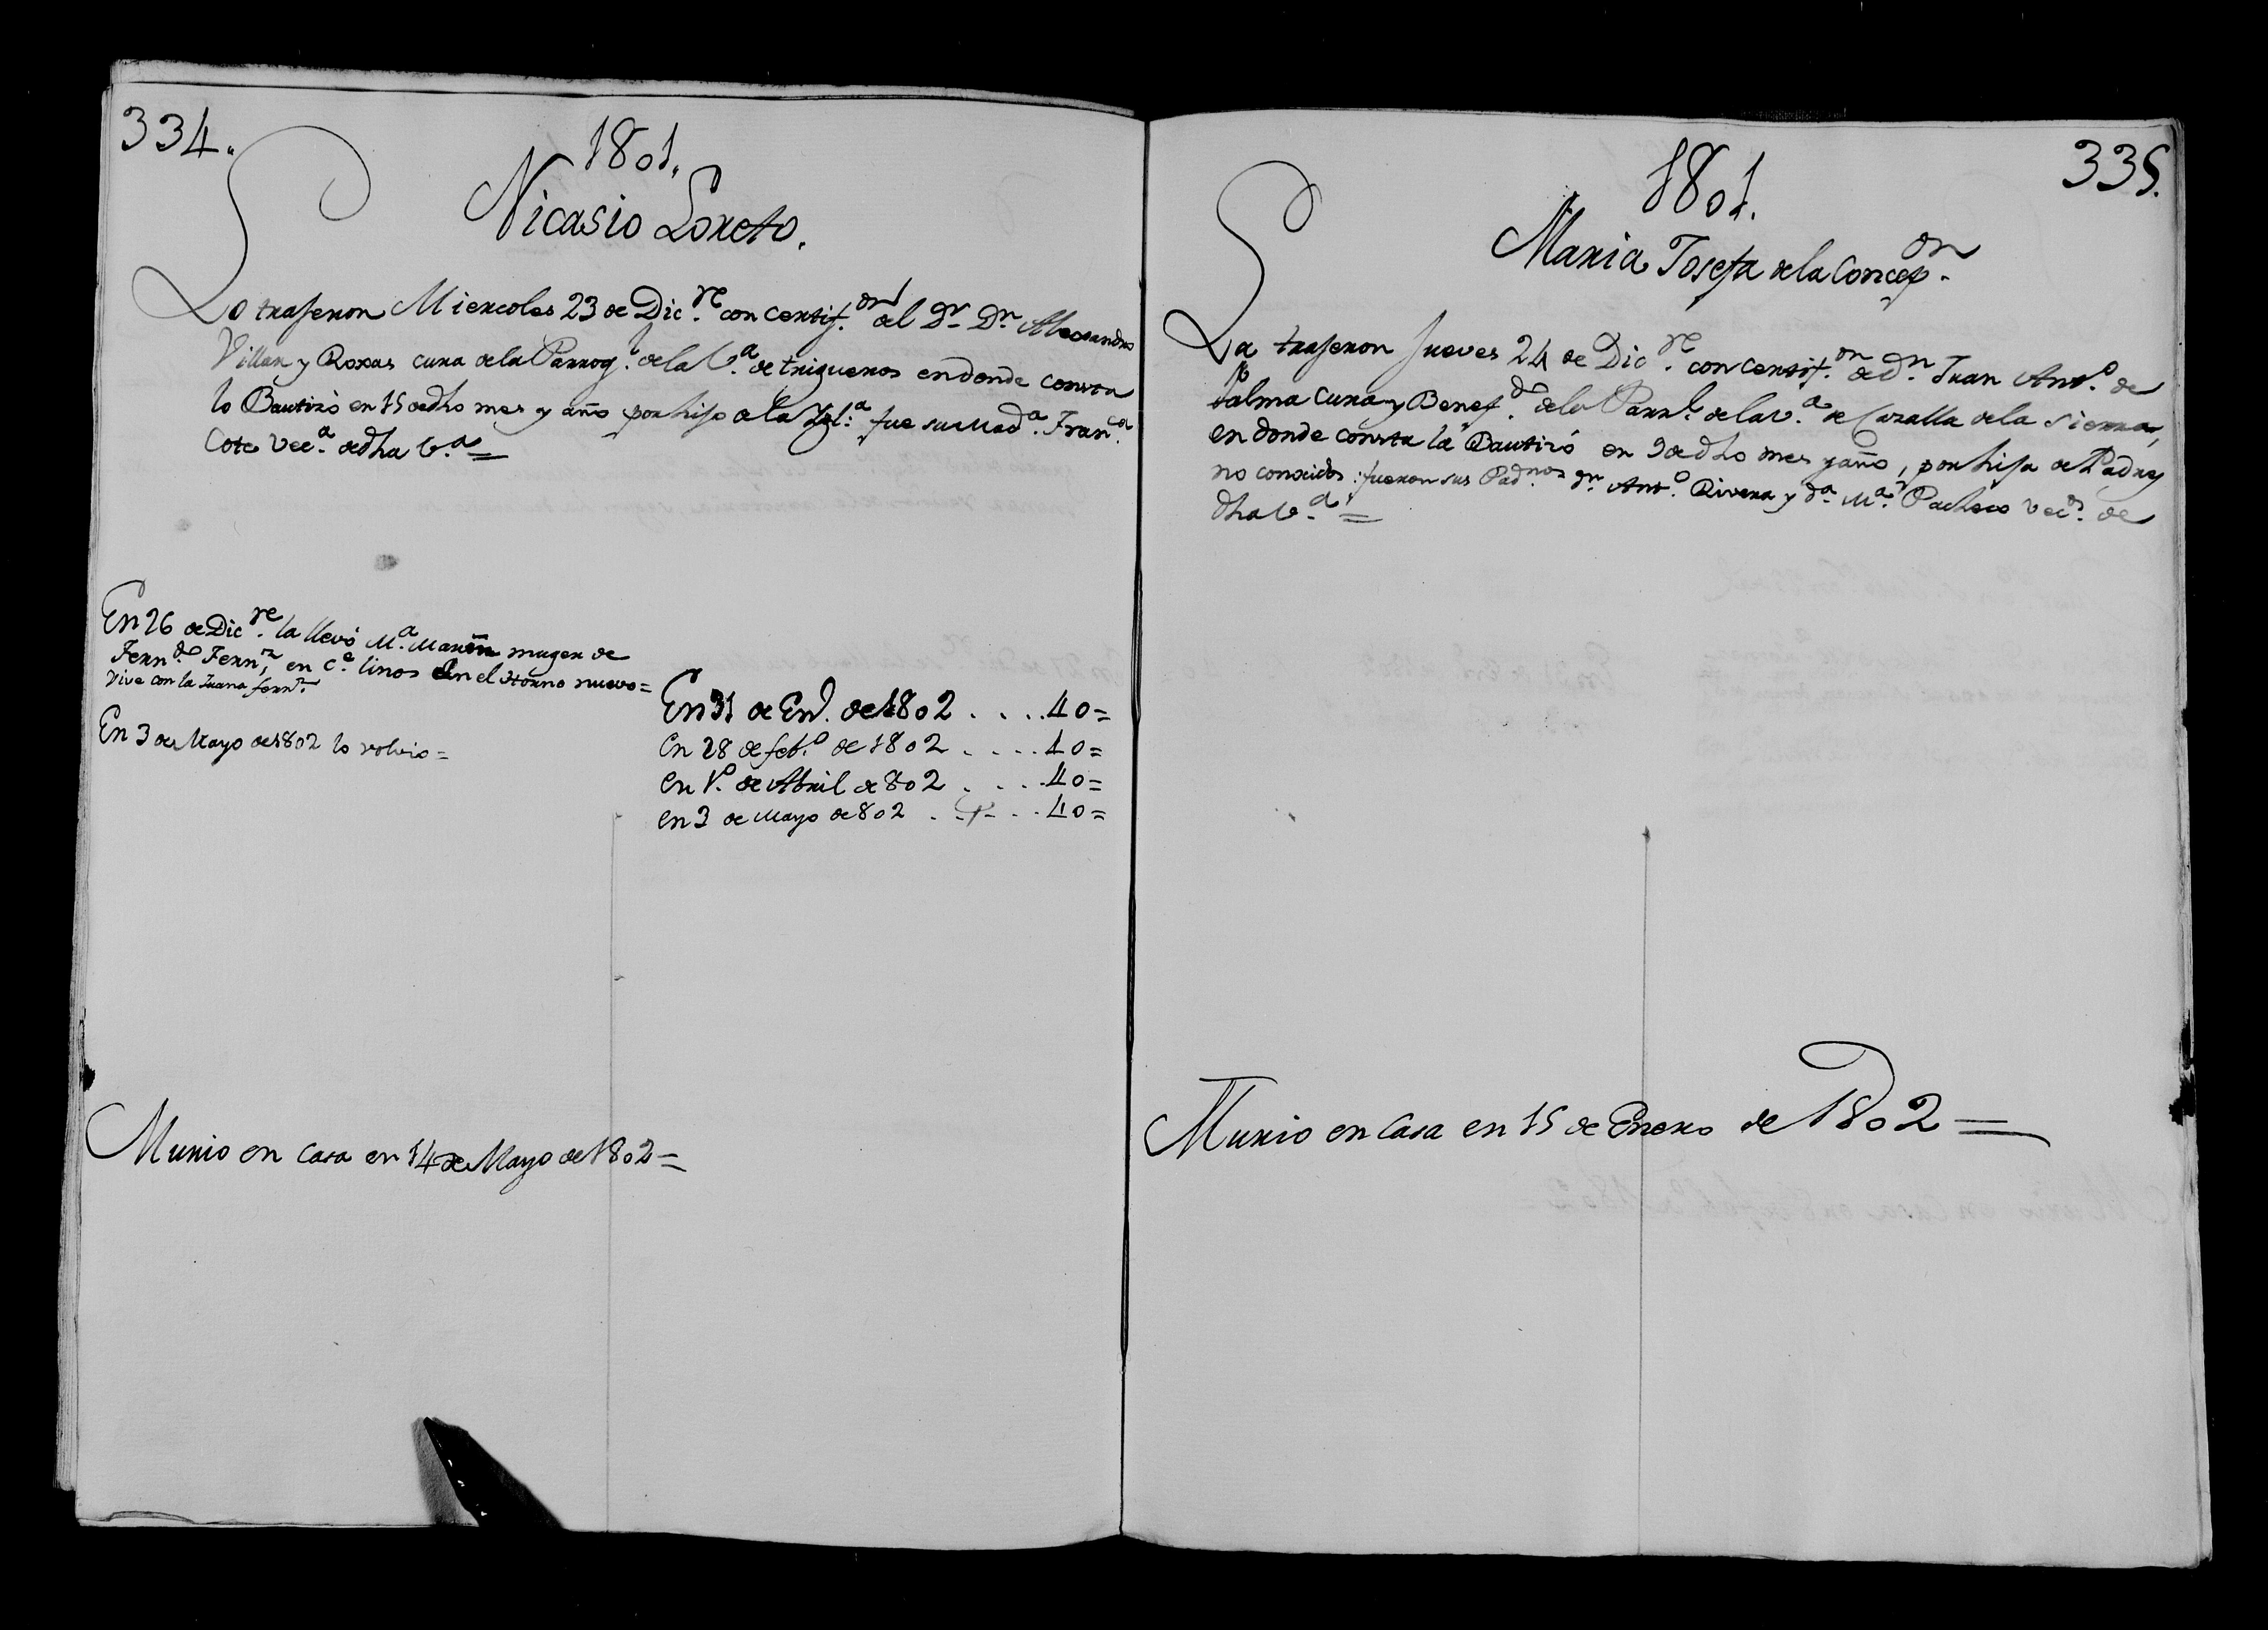 334.
1801.
Nicasio Loreto.
Lo trajeron Miercoles 23 de Dic.re con certif.on del Dr. Dn. Alexandro
Villar y Roxas cura de la Parroq.l de la V.a de trigueros en donde consta
lo Bautizó en 15 de dho mes y año por hijo de la Igl.a fue su Mad.a Fran.ca
Cote Vec.a de dha V.a =
En 26 de Dic.re la llevó M.a Marin muger de
Fern.do Fern.z en C.e linos en el Horno nuevo =
Vive con la Juana fern.z
En 3 de Mayo de 1802 lo volvio =
En 31 de En.o de 1802 . . . . 40 =
En 28 de feb.o de 1802 . . . . 40 =
en 1.o de Abril de 802 . . . . 40 =
en 3 de Mayo de 802 . . + . . . 40 =
Murio en casa en 14 de Mayo de 1802 =
335.
1801.
Maria Josefa de la Concep.on
La trajeron Jueves 24 de Dic.re con certif.on de Dn. Juan Ant.o de
Palma Cura y Benef.do de la Parr.l de la V.a de Cazalla de la Sierra,
en donde consta la Bautizó en 9 de dho mes y año, por hija de Padres
no conocidos: fueron sus Pad.nos dn. Ant.o Rivera y d.a M.a Pacheco vec.s de
dha V.a =
Murio en Casa en 15 de Enero de 1802 =